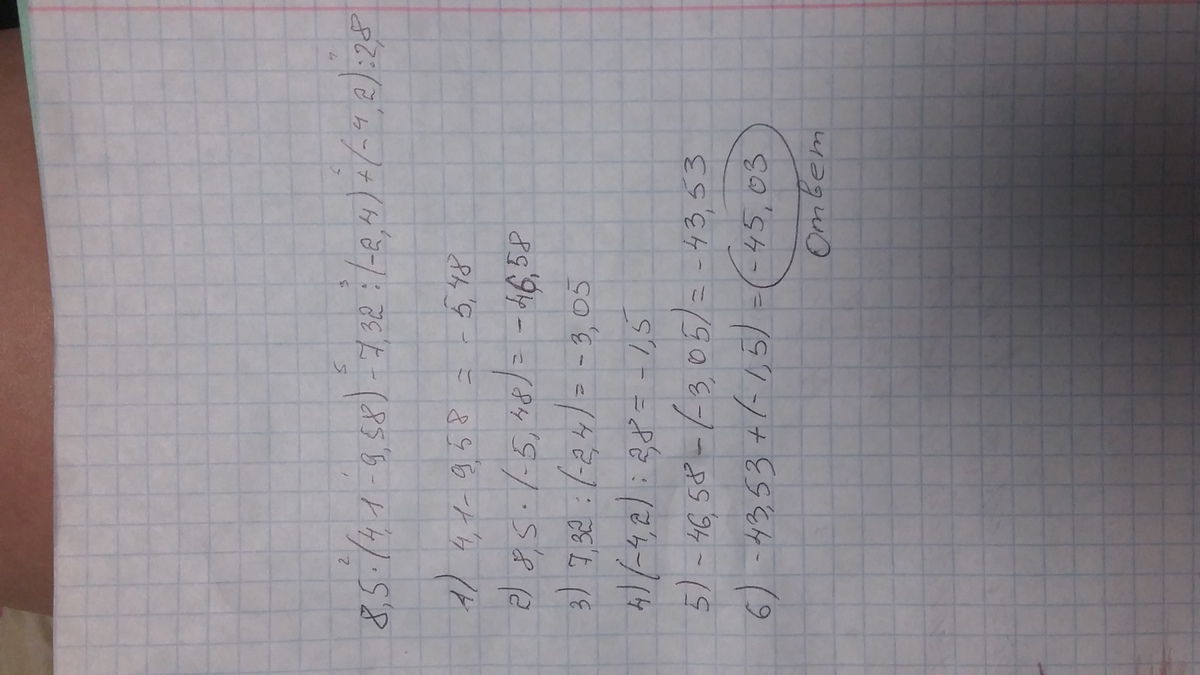 8,5·(4,1-9,58)-7,32:(-2,4)+(-4,2):2,8
1) 4,1-9,58=-5,48
2) 8,5·(-5,48)=-46,58
3) 7,32:(-2,4)=-3,05
4) (-4,2):2,8=-1,5
5) -46,58-(-3,05)=-43,53
6) -43,53+(-1,5)=-45,03
Ответ